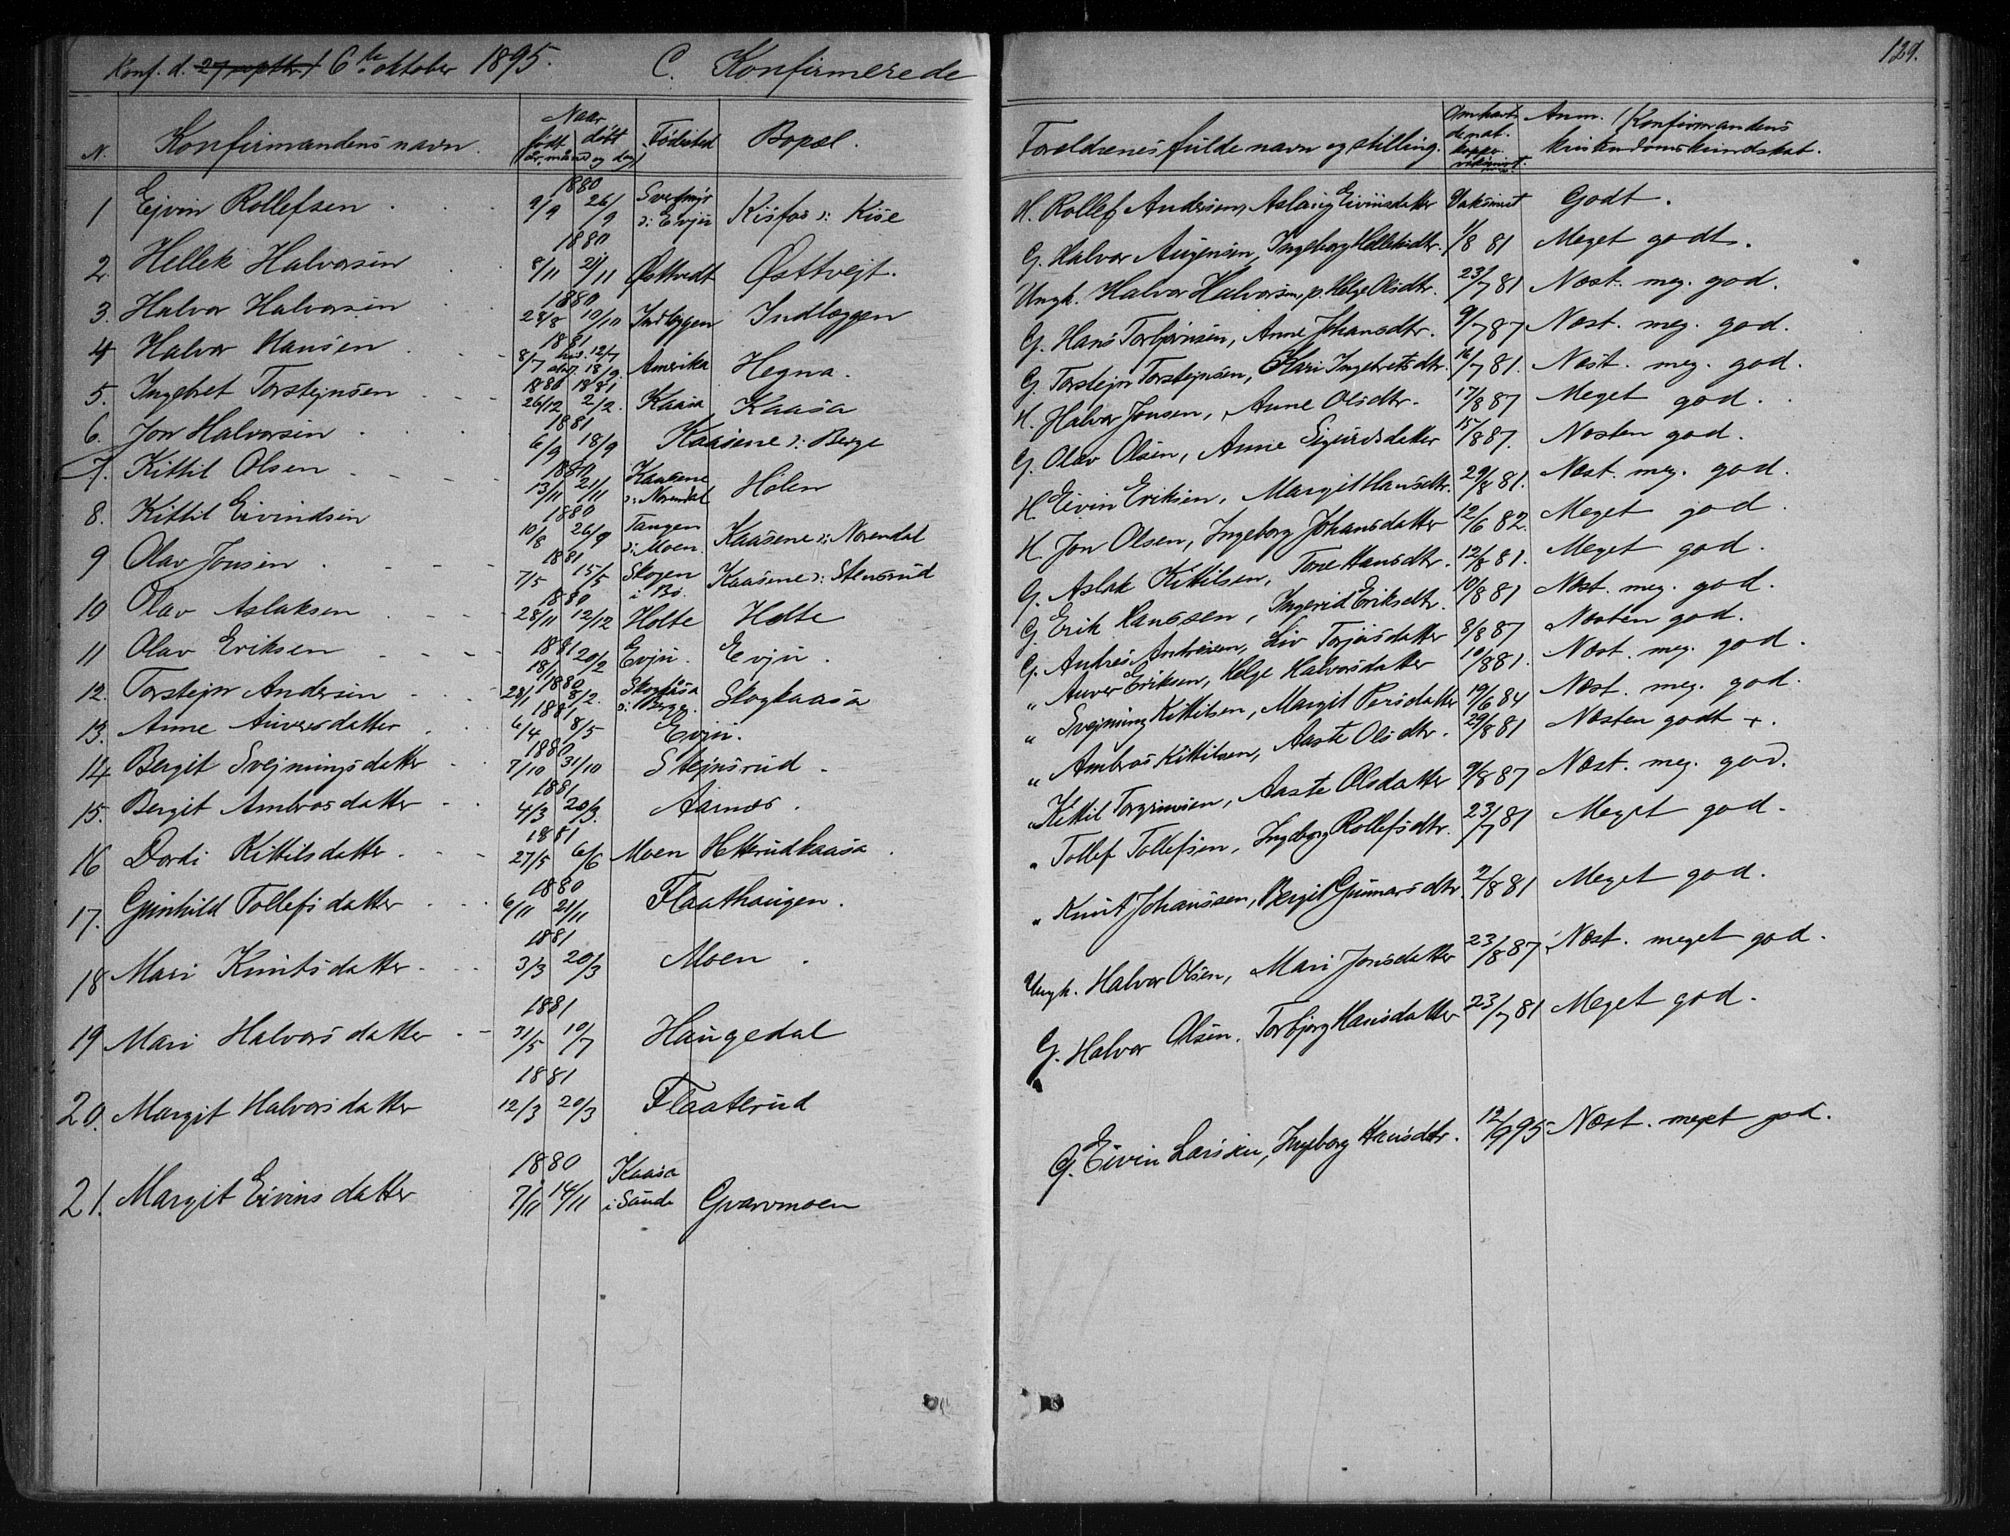 Konf. d. 27 septbr. 6te oktober 1895. C. Konfirmerede
129.
N. Konfirmandens navn. Naar født døbt (år, måned og dag) Fødested Bopæl.
Forældrenes fulde navn og stilling. Anm. Konfirmandens kristendomskundskab.
1 Ejvin Rollefsen 1880 9/9 26/9 Evju Kisfos : Kise
H. Rollef Andersen, Aslaug Eivinsdatter Vaksinert Godt.
2. Hellek Halvorsen 1880 8/11 21/11 Østtvedt Østtvejt.
G. Halvor Augensen, Ingeborg Helleksdtr. 1/8 81 Meget godt.
3. Halvor Halvorsen 1880 28/8 10/10 Indlæggen Indlæggen
Ungk. Halvor Halvorsen, p. Helge Olsdtr. 23/7 81 Næst. meg. god.
4 Halvor Hansen 1881 8/7 12/7 18/9 Amerika Hegna.
G. Hans Torbjørnsen, Anne Johansdtr. 9/7 87 Næst. meg. god.
5. Ingebret Torstejnsen 1880 1881 26/12 2/2. Kaasa Kaasa
G. Torstejn Torstejnsen, Kari Ingebretsdtr. 16/7 81. Næst. meg. god.
6. Jon Halvorsen 1881 6/9 18/9 Kaasene : Berge
H. Halvor Jonsen, Anne Olsdtr. 17/8 87 Meget god.
7. Kittil Olsen 1880 13/11 21/11 Kaasene : Norendal Holen
G. Olav Olsen, Anne Sigurdsdatter 15/8 87. Næsten god.
8. Kittil Eivindsen 1880 10/8 26/9 Tangen : Moen. Kaasene : Norendal
H. Eivin Eriksen, Margit Hansdtr. 29/8 81. Næst. meg. god.
9 Olav Jonsen 1881 7/5 15/5 Skogen i Bø. Kaasene : Stensrud
H. Jon Olsen, Ingeborg Johansdatter 12/6 82. Meget god.
10 Olav Aslaksen 1880 28/11 12/12 Holte Holte
G. Aslak Kittilsen, Tone Hansdtr. 12/8 81. Meget god.
11 Olav Eriksen 1881 18/1 20/2 Evju. Evju.
G. Erik Hanssen, Ingerid Eriksdtr. 10/8 81 Næst. meg. god.
12. Torstejn Andersen 1880 28/1 8/2. Skogkaasa
G. Andres Andresen, Liv Torjusdatter 8/8 87 Næsten god.
13. Anne Auversdatter 1881 6/4 8/5 Evju.
" Auver Eriksen, Helge Halvorsdatter 10/8 81. Næst. meg. god.
14 Bergit Svejnungsdatter 1880 7/10 31/10 Stejnsrud
" Svejnung Kittilsen, Margit Persdatter 19/6 84 Næst. meg. god.
15. Bergit Ambrosdatter 1881 4/3 20/3. Aarnæs.
" Ambros Kittilsen, Aaste Olsdtr. 29/8 81 Næsten godt +.
16 Dordi Kittilsdatter 1881 27/5 6/6 Moen Hetterudkaasa
" Kittil Torgrimsen, Aaste Olsdatter 9/8 87 Næst. meg. god.
17. Gunhild Tollefsdatter 1880 6/11 21/11 Flaathaugen.
" Tollef Tollefsen, Ingeborg Rollefsdtr. 23/7 81 Meget god.
18 Mari Knutsdatter 1881 3/3 20/3 Moen
" Knut Johanssen, Bergit Gunnarsdtr. 2/8 81 Meget god.
19 Mari Halvorsdatter 1881 21/5 10/7 Haugedal
Ungk. Halvor Olsen, Mari Jonsdatter 23/8 87 Næst. meget god.
20. Margit Halvorsdatter 1881 12/3 20/3 Flaaterud
G. Halvor Olsen, Torbjørg Hansdatter 23/7 81 Meget god.
21. Margit Eivinsdatter 1880 7/11 14/11 Kaasa i Saude Gvarvmoen
G. Eivin Larsen, Ingeborg Hansdtr. 12/9 95 Næst. meget god.